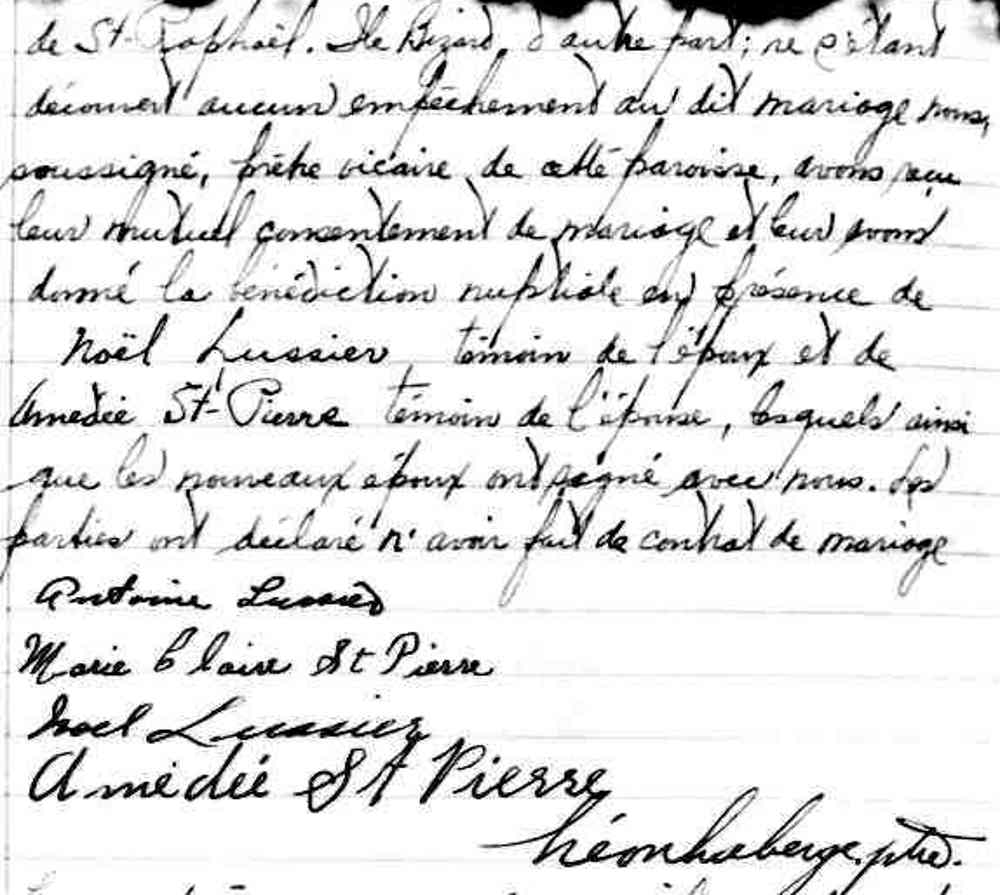 de St-Raphaël. Ile Bizard, d'autre part; ne s'étant
découvert aucun empêchement au dit mariage nous,
soussigné, prêtre vicaire de cette paroisse, avons reçu
leur mutuel consentement de mariage et leur avons
donné la bénédiction nuptiale en présence de
Noël Lussier témoin de l'époux et de
Amédée St-Pierre témoin de l'épouse, lesquels ainsi
que les nouveaux époux ont signé avec nous. Les
parties ont déclaré n'avoir fait de contrat de mariage
Antoine Lussier
Marie Claire St Pierre
Noel Lussier
Amédée St Pierre
Léon Laberge. ptre.